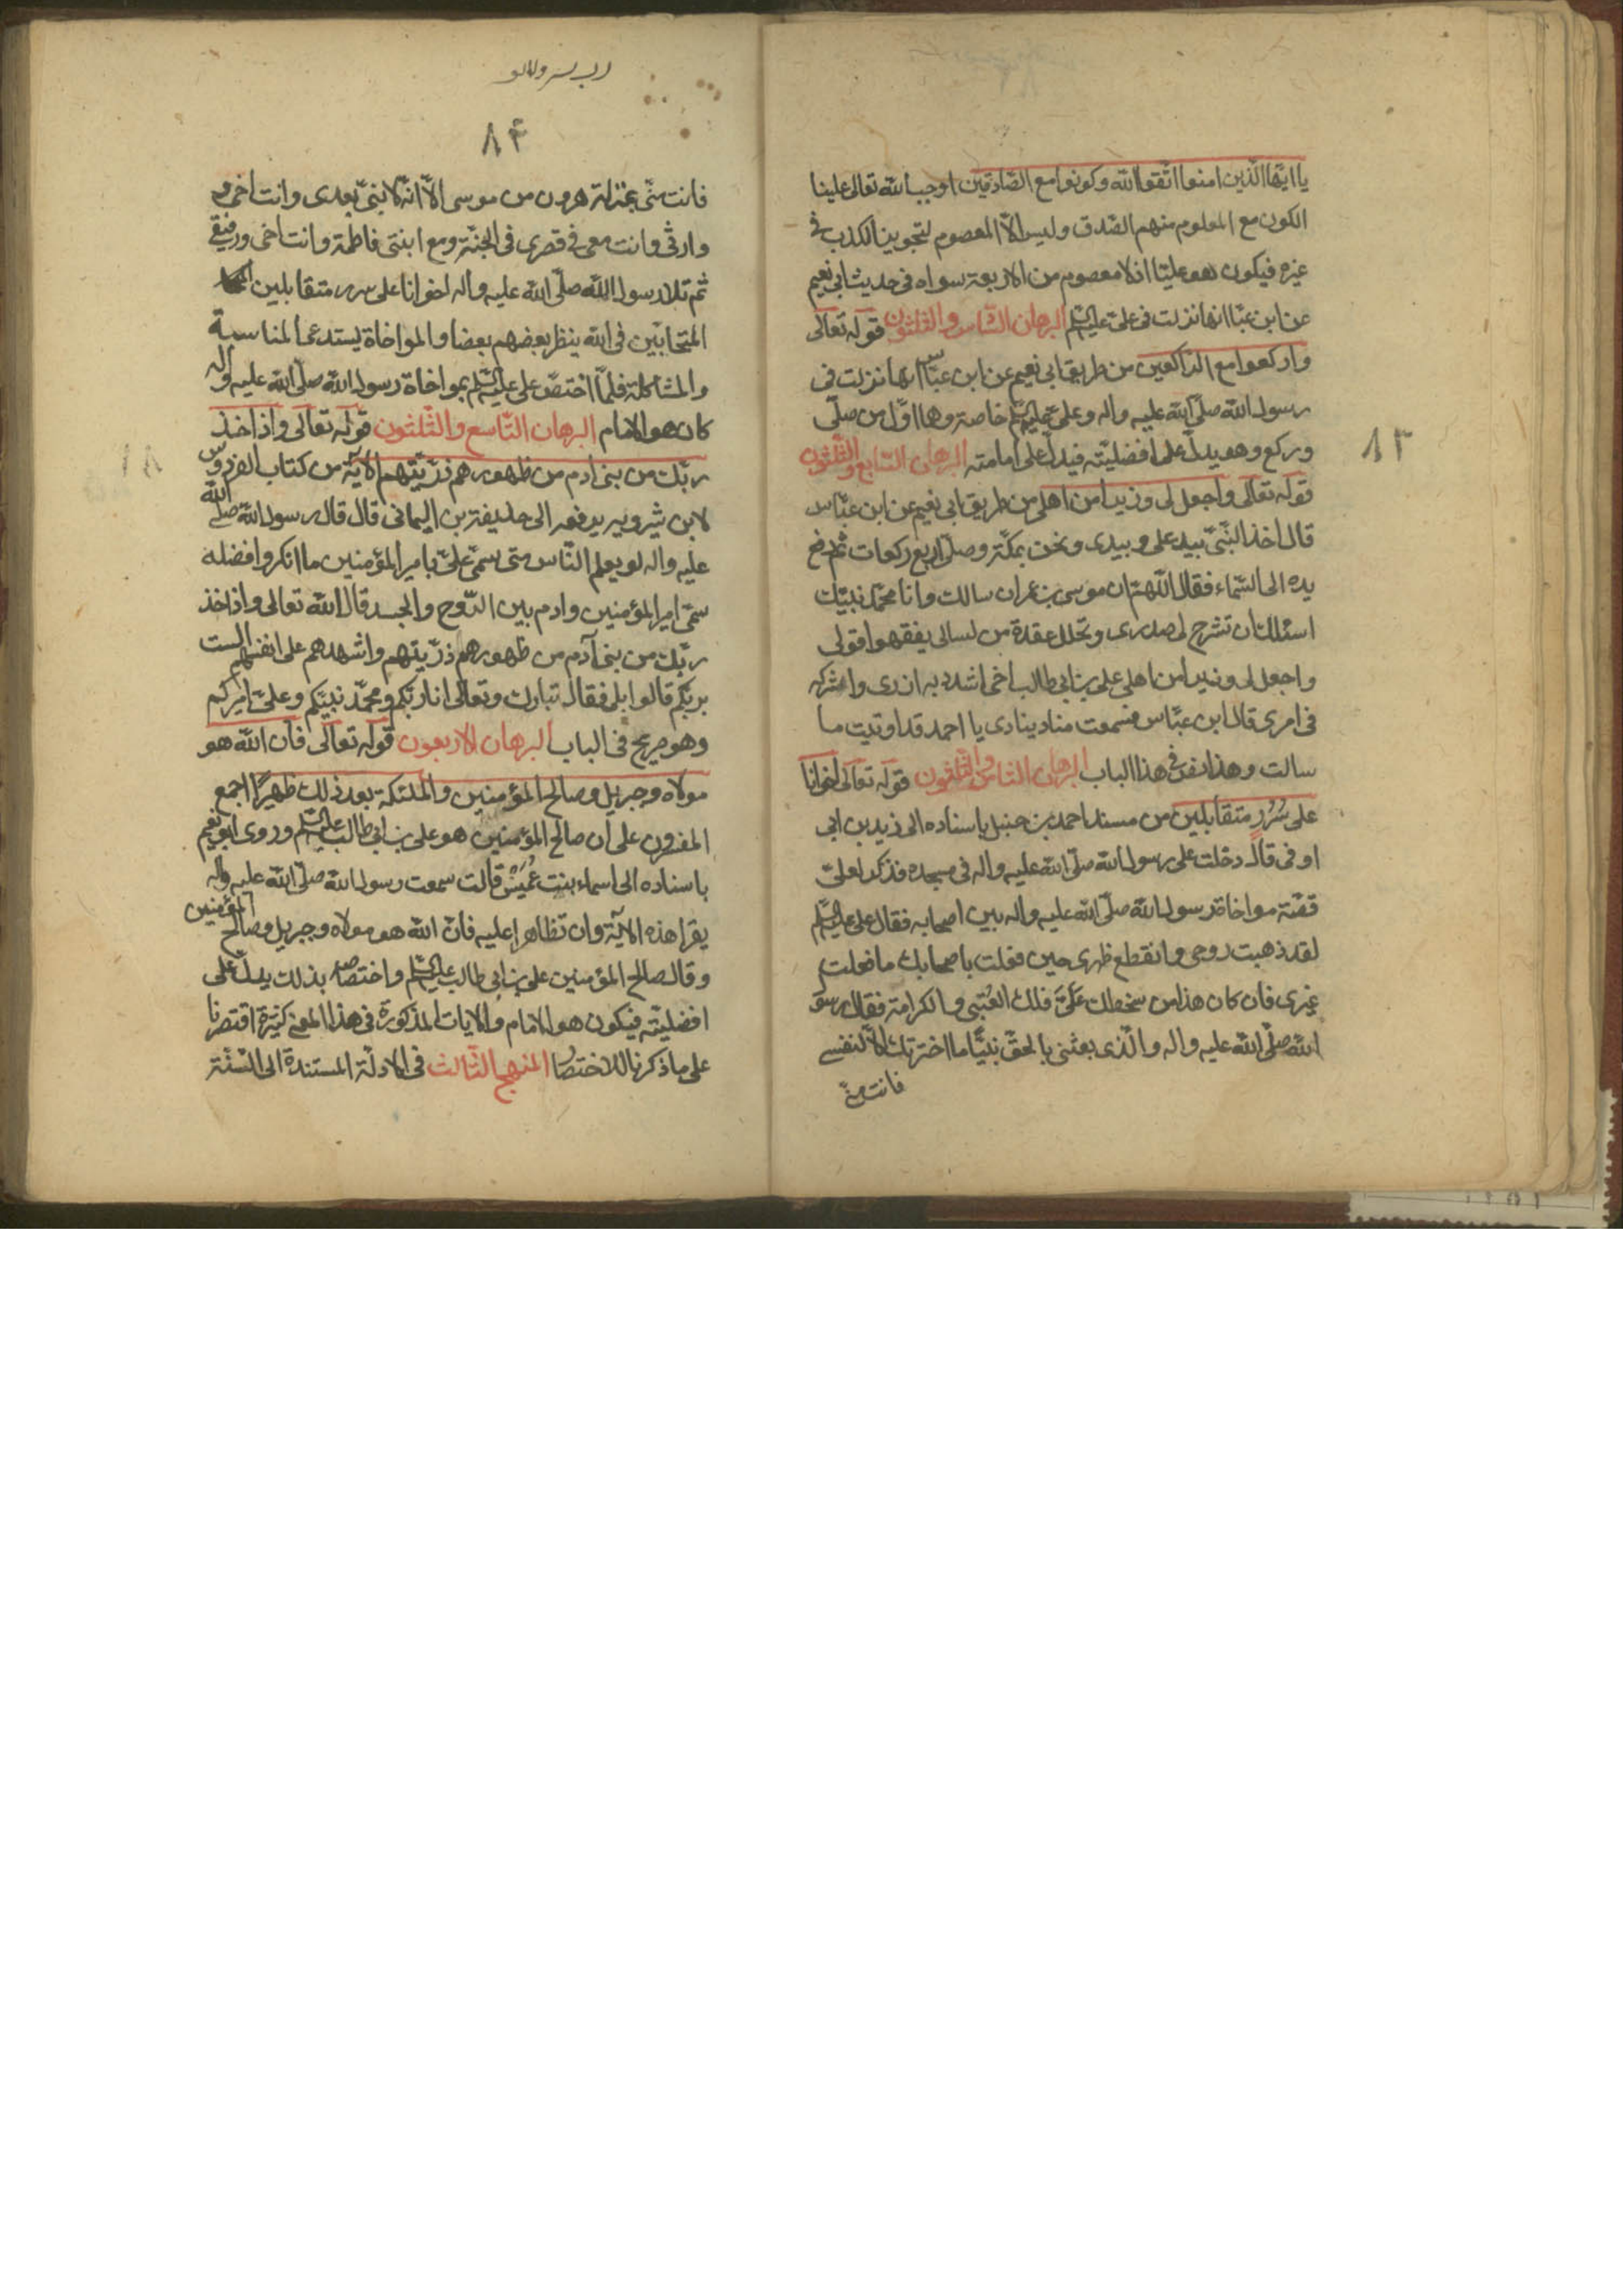 يا ايها الذين امنوا اتقوا الله وكونوا مع الصادقين اوجب الله تعالى علينا
الكون مع المعلوم منهم الصدق وليس الا المعصوم لتجويز الكذب في
غيره فيكون هو عليا اذ لا معصوم من الاربعة سواه في حديث ابي نعيم
عن ابن عباس انها نزلت في علي عليه السلم البرهان السادس والثلثون قوله تعالى
واركعوا مع الراكعين من طريق ابي نعيم عن ابن عباس انها نزلت في
رسول الله صلى الله عليه واله وعلي عليه السلم خاصة وهما اول من صلى
وركع وهو يدل على افضليته فيدل على امامته البرهان السابع والثلثون
قوله تعالى واجعل لي وزيرا من اهلي من طريق ابي نعيم عن ابن عباس
قال اخذ النبي بيد علي وبيدي ونحن بمكة وصلى اربع ركعات ثم رفع
يده الى السماء فقال اللهم ان موسى بن عمران سالك وانا محمد نبيك
اسئلك ان تشرح لي صدري وتحلل عقدة من لساني يفقهوا قولي
واجعل لي وزيرا من اهلي علي بن ابي طالب اخي اشدد به ازري واشركه
في امري قال ابن عباس فسمعت مناد ينادي يا احمد قد اوتيت ما
سالت وهذا نص في هذا الباب البرهان الثامن والثلثون قوله تعالى اخوانا
على سُرُر متقابلين من مسند احمد بن حنبل باسناده الى زيد بن ابي
اوفى قال دخلت على رسول الله صلى الله عليه واله في مسجده فذكر لعلي
قصة مواخاة رسول الله صلى الله عليه واله بين اصحابه فقال علي عليه السلم
لقد ذهبت روحي وانقطع ظهري حين فعلت باصحابك ما فعلت
غيري فان كان هذا من سخطك عَلَيَّ فلك العُتبى والكرامة فقال رسول
الله صلى الله عليه واله والذي بعثني بالحق نبيًا ما اخترتك الا لنفسي
فانت مني
٨٣
٨٤
فانت مني بمنزلة هرون من موسى الا انه لا نبي بعدي وانت اخي و
وارثي وانت معي في قصري في الجنة ومع ابنتي فاطمة وانت اخي ورفيقي
ثم تلا رسول الله صلى الله عليه واله اخوانا على سرر متقابلين
المتحابين في الله ينظر بعضهم بعضا والمواخاة يستدعي المناسبة
والمشاكلة فلما اختص علي عليه السلم بمواخاة رسول الله صلى الله عليه واله
كان هو الامام البرهان التاسع والثلثون قوله تعالى واذ اخذ
ربك من بني ادم من ظهورهم ذريتهم الاية من كتاب الفردوس
لابن شيرويه يرفعه الى حذيفة بن اليماني قال قال رسول الله صلى الله
عليه واله لو يعلم الناس متى سمي علي بامير المؤمنين ما انكروا فضله
سمي امير المؤمنين وادم بين الروح والجسد قال الله تعالى واذ اخذ
ربك من بني آدم من ظهورهم ذريتهم واشهدهم على انفسهم الست
بربكم قالوا بلى فقال تبارك وتعالى انا ربكم ومحمد نبيكم وعلي اميركم
وهو صريح في الباب البرهان الاربعون قوله تعالى فان الله هو
مولاه وجبريل وصالح المؤمنين والملئكة بعد ذلك ظهيرًا اجمع
المفسرون على ان صالح المؤمنين هو علي بن ابي طالب عليه السلم وروى ابو نعيم
باسناده الى اسماء بنت عُمَيْس قالت سمعت رسول الله صلى الله عليه واله
يقرا هذه الآية وان تظاهرا عليه فان الله هو مولاه وجبريل وصالح المؤمنين
وقال صالح المؤمنين علي بن ابي طالب عليه السلم واختصاصه بذلك يدل على
افضليته فيكون هو الامام والايات المذكورة في هذا المعنى كثيرة اقتصرنا
على ما ذكرنا للاختصار المنهج الثالث في الادلة المستندة الى السنة